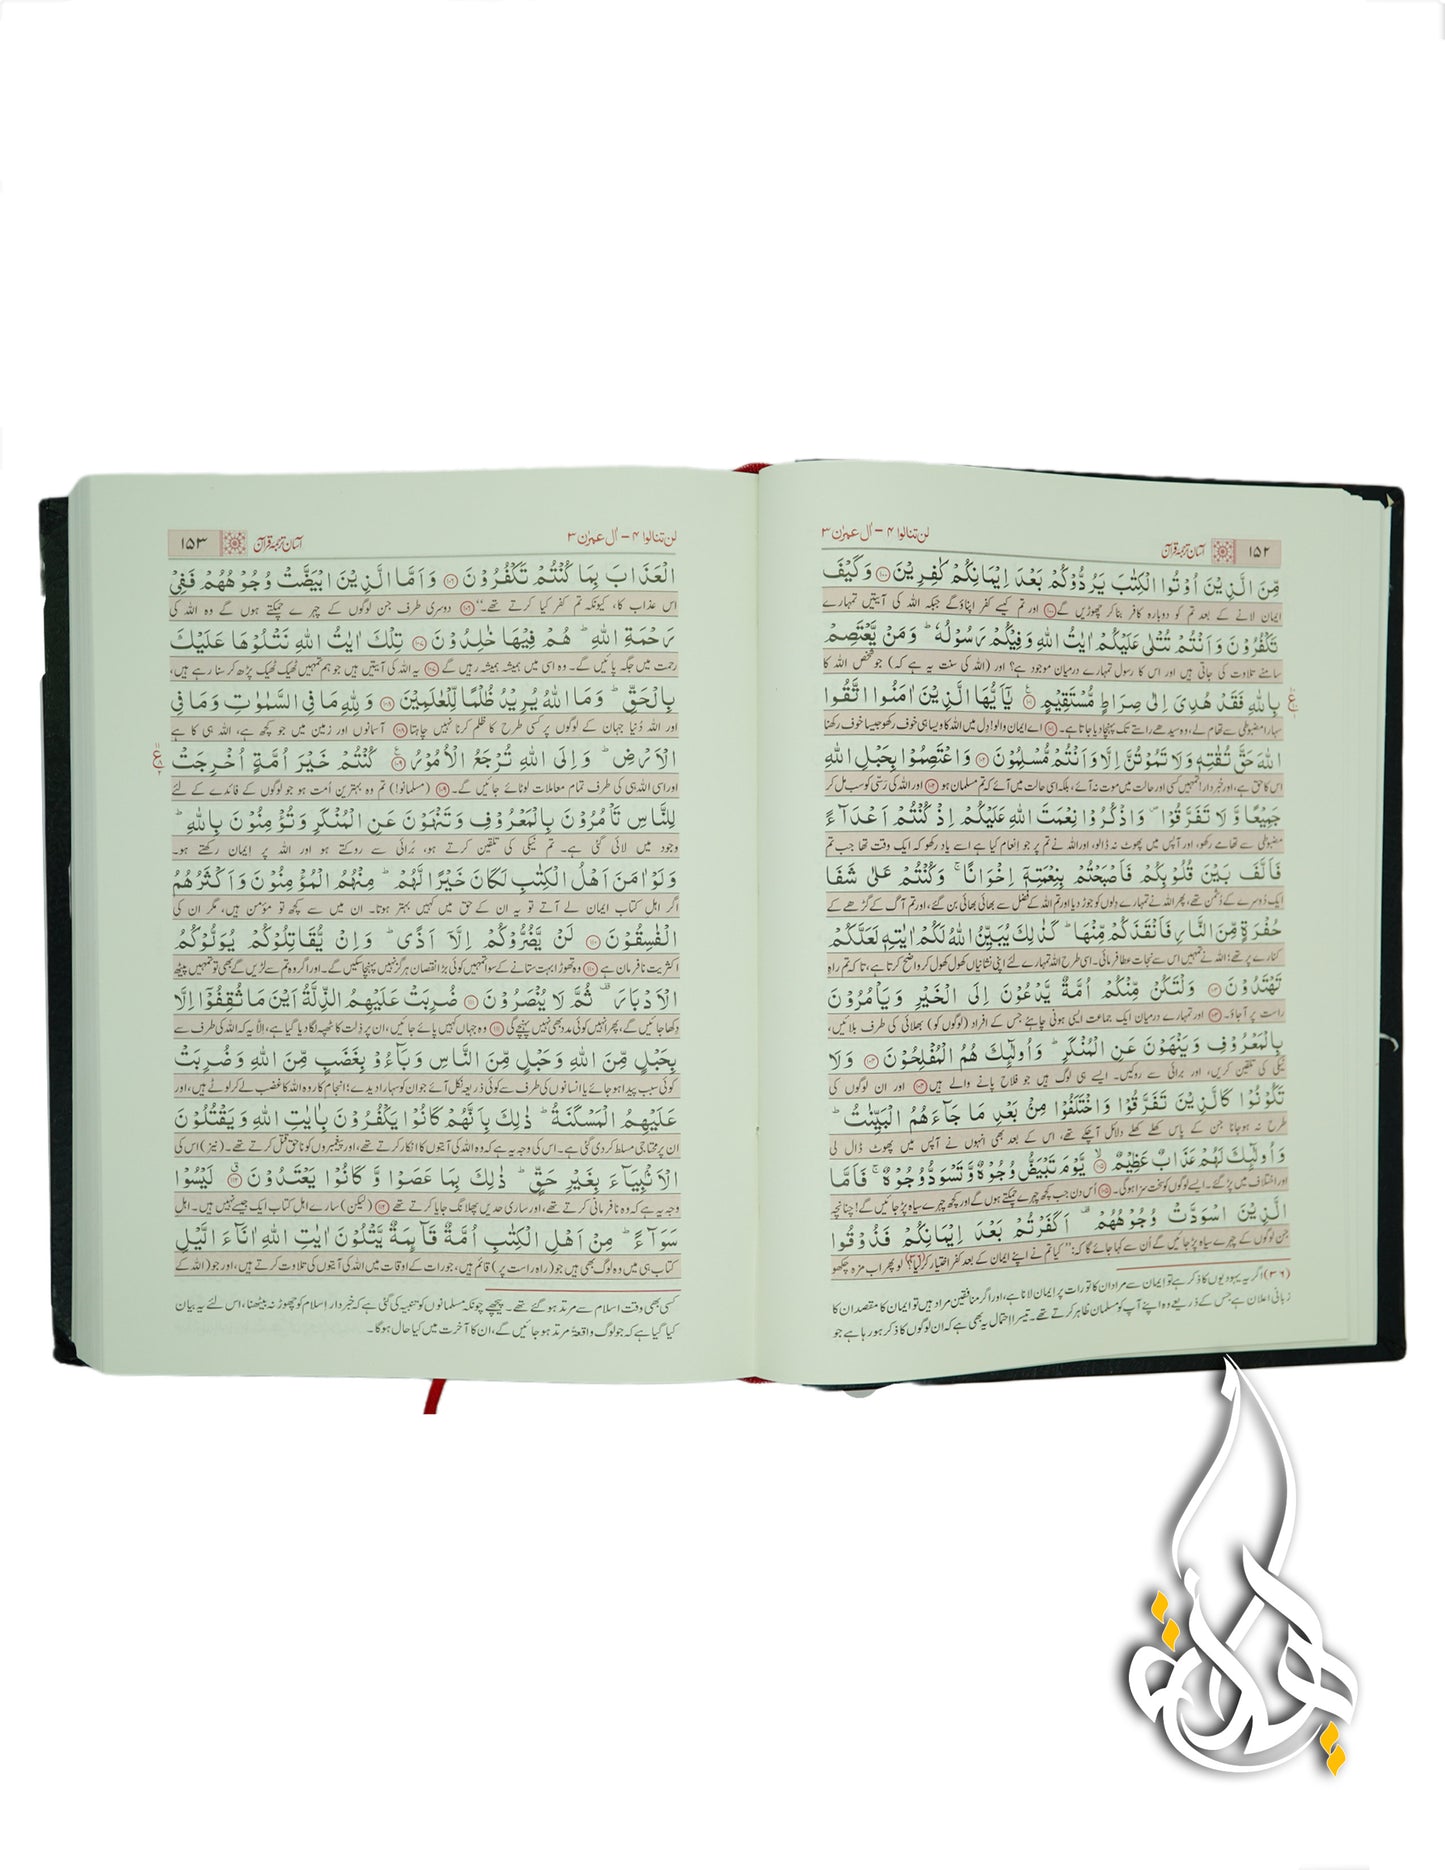 ۱۵۲ آسان ترجمۂ قرآن لن تنالوا ۴ – اٰل عمرٰن ۳
مِّنَ الَّذِيْنَ اُوْتُوا الْكِتٰبَ يَرُدُّوْكُمْ بَعْدَ اِيْمَانِكُمْ كٰفِرِيْنَ ۝۱۰۰ وَكَيْفَ
ایمان لانے کے بعد تم کو دوبارہ کافر بنا کر چھوڑیں گے ۝۱۰۰ اور تم کیسے کفر اپناؤ گے جبکہ اللہ کی آیتیں تمہارے
تَكْفُرُوْنَ وَاَنْتُمْ تُتْلٰى عَلَيْكُمْ اٰيٰتُ اللهِ وَفِيْكُمْ رَسُوْلُهٗ ؕ وَمَنْ يَّعْتَصِمْ
سامنے تلاوت کی جاتی ہیں اور اس کا رسول تمہارے درمیان موجود ہے؟ اور (اللہ کی سنت یہ ہے کہ) جو شخص اللہ کا
بِاللهِ فَقَدْ هُدِىَ اِلٰى صِرَاطٍ مُّسْتَقِيْمٍ ۝۱۰۱ يٰۤاَيُّهَا الَّذِيْنَ اٰمَنُوا اتَّقُوا
سہارا مضبوطی سے تھام لے، وہ سیدھے راستے تک پہنچا دیا جاتا ہے۔ ۝۱۰۱ اے ایمان والو! دل میں اللہ کا ویسا ہی خوف رکھو جیسا خوف رکھنا
اللهَ حَقَّ تُقٰتِهٖ وَلَا تَمُوْتُنَّ اِلَّا وَاَنْتُمْ مُّسْلِمُوْنَ ۝۱۰۲ وَاعْتَصِمُوْا بِحَبْلِ اللهِ
اس کا حق ہے، اور خبردار! تمہیں کسی اور حالت میں موت نہ آئے، بلکہ اسی حالت میں آئے کہ تم مسلمان ہو ۝۱۰۲ اور اللہ کی رسّی کو سب مل کر
جَمِيْعًا وَّلَا تَفَرَّقُوْا ۪ وَاذْكُرُوْا نِعْمَتَ اللهِ عَلَيْكُمْ اِذْ كُنْتُمْ اَعْدَآءً
مضبوطی سے تھامے رکھو، اور آپس میں پھوٹ نہ ڈالو، اور اللہ نے تم پر جو انعام کیا ہے اسے یاد رکھو کہ ایک وقت تھا جب تم
فَاَلَّفَ بَيْنَ قُلُوْبِكُمْ فَاَصْبَحْتُمْ بِنِعْمَتِهٖۤ اِخْوَانًا ۚ وَكُنْتُمْ عَلٰى شَفَا
ایک دوسرے کے دشمن تھے، پھر اللہ نے تمہارے دلوں کو جوڑ دیا اور تم اللہ کے فضل سے بھائی بھائی بن گئے، اور تم آگ کے گڑھے کے
حُفْرَةٍ مِّنَ النَّارِ فَاَنْقَذَكُمْ مِّنْهَا ؕ كَذٰلِكَ يُبَيِّنُ اللهُ لَكُمْ اٰيٰتِهٖ لَعَلَّكُمْ
کنارے پر تھے؛ اللہ نے تمہیں اس سے نجات عطا فرمائی۔ اسی طرح اللہ تمہارے لئے اپنی نشانیاں کھول کھول کر واضح کرتا ہے، تاکہ تم راہ
تَهْتَدُوْنَ ۝۱۰۳ وَلْتَكُنْ مِّنْكُمْ اُمَّةٌ يَّدْعُوْنَ اِلَى الْخَيْرِ وَيَاْمُرُوْنَ
راست پر آجاؤ۔ ۝۱۰۳ اور تمہارے درمیان ایک جماعت ایسی ہونی چاہئے جس کے افراد (لوگوں کو) بھلائی کی طرف بلائیں،
بِالْمَعْرُوْفِ وَيَنْهَوْنَ عَنِ الْمُنْكَرِ ؕ وَاُولٰٓئِكَ هُمُ الْمُفْلِحُوْنَ ۝۱۰۴ وَلَا
نیکی کی تلقین کریں، اور برائی سے روکیں۔ ایسے ہی لوگ ہیں جو فلاح پانے والے ہیں ۝۱۰۴ اور ان لوگوں کی
تَكُوْنُوْا كَالَّذِيْنَ تَفَرَّقُوْا وَاخْتَلَفُوْا مِنْۢ بَعْدِ مَا جَآءَهُمُ الْبَيِّنٰتُ ؕ
طرح نہ ہو جانا جن کے پاس کھلے کھلے دلائل آچکے تھے، اس کے بعد بھی انہوں نے آپس میں پھوٹ ڈال لی
وَاُولٰٓئِكَ لَهُمْ عَذَابٌ عَظِيْمٌ ۝۱۰۵ يَّوْمَ تَبْيَضُّ وُجُوْهٌ وَّتَسْوَدُّ وُجُوْهٌ ۚ فَاَمَّا
اور اختلاف میں پڑ گئے۔ ایسے لوگوں کو سخت سزا ہوگی۔ ۝۱۰۵ اُس دن جب کچھ چہرے چمکتے ہوں گے اور کچھ چہرے سیاہ پڑ جائیں گے! چنانچہ
الَّذِيْنَ اسْوَدَّتْ وُجُوْهُهُمْ ۟ اَكَفَرْتُمْ بَعْدَ اِيْمَانِكُمْ فَذُوْقُوا
جن لوگوں کے چہرے سیاہ پڑ جائیں گے اُن سے کہا جائے گا کہ: ”کیا تم نے اپنے ایمان کے بعد کفر اختیار کر لیا؟(۳۶) لو پھر اب مزہ چکھو
(۳۶) اگر یہ یہودیوں کا ذکر ہے تو ایمان سے مراد ان کا تورات پر ایمان لانا ہے، اور اگر منافقین مراد ہیں تو ایمان کا مقصد ان کا
زبانی اعلان ہے جس کے ذریعے وہ اپنے آپ کو مسلمان ظاہر کرتے تھے۔ تیسرا احتمال یہ بھی ہے کہ ان لوگوں کا ذکر ہو رہا ہے جو
۱۵۳ آسان ترجمۂ قرآن لن تنالوا ۴ – اٰل عمرٰن ۳
الْعَذَابَ بِمَا كُنْتُمْ تَكْفُرُوْنَ ۝۱۰۶ وَاَمَّا الَّذِيْنَ ابْيَضَّتْ وُجُوْهُهُمْ فَفِىْ
اس عذاب کا، کیونکہ تم کفر کیا کرتے تھے۔“ ۝۱۰۶ دوسری طرف جن لوگوں کے چہرے چمکتے ہوں گے وہ اللہ کی
رَحْمَةِ اللهِ ؕ هُمْ فِيْهَا خٰلِدُوْنَ ۝۱۰۷ تِلْكَ اٰيٰتُ اللهِ نَتْلُوْهَا عَلَيْكَ
رحمت میں جگہ پائیں گے۔ وہ اسی میں ہمیشہ ہمیشہ رہیں گے ۝۱۰۷ یہ اللہ کی آیتیں ہیں جو ہم تمہیں ٹھیک ٹھیک پڑھ کر سنا رہے ہیں،
بِالْحَقِّ ؕ وَمَا اللهُ يُرِيْدُ ظُلْمًا لِّلْعٰلَمِيْنَ ۝۱۰۸ وَلِلّٰهِ مَا فِى السَّمٰوٰتِ وَمَا فِى
اور اللہ دنیا جہان کے لوگوں پر کسی طرح کا ظلم کرنا نہیں چاہتا ۝۱۰۸ آسمانوں اور زمین میں جو کچھ ہے، اللہ ہی کا ہے
الْاَرْضِ ؕ وَاِلَى اللهِ تُرْجَعُ الْاُمُوْرُ ۝۱۰۹ كُنْتُمْ خَيْرَ اُمَّةٍ اُخْرِجَتْ
اور اسی اللہ ہی کی طرف تمام معاملات لوٹائے جائیں گے۔ ۝۱۰۹ (مسلمانو!) تم وہ بہترین اُمت ہو جو لوگوں کے فائدے کے لئے
لِلنَّاسِ تَاْمُرُوْنَ بِالْمَعْرُوْفِ وَتَنْهَوْنَ عَنِ الْمُنْكَرِ وَتُؤْمِنُوْنَ بِاللهِ ؕ
وجود میں لائی گئی ہے۔ تم نیکی کی تلقین کرتے ہو، بُرائی سے روکتے ہو اور اللہ پر ایمان رکھتے ہو۔
وَلَوْ اٰمَنَ اَهْلُ الْكِتٰبِ لَكَانَ خَيْرًا لَّهُمْ ؕ مِنْهُمُ الْمُؤْمِنُوْنَ وَاَكْثَرُهُمُ
اگر اہلِ کتاب ایمان لے آتے تو یہ ان کے حق میں کہیں بہتر ہوتا۔ ان میں سے کچھ تو مؤمن ہیں، مگر ان کی
الْفٰسِقُوْنَ ۝۱۱۰ لَنْ يَّضُرُّوْكُمْ اِلَّاۤ اَذًى ؕ وَاِنْ يُّقَاتِلُوْكُمْ يُوَلُّوْكُمُ
اکثریت نافرمان ہے ۝۱۱۰ وہ تھوڑا بہت ستانے کے سوا تمہیں کوئی بڑا نقصان ہرگز نہیں پہنچا سکیں گے۔ اور اگر وہ تم سے لڑیں گے بھی تو تمہیں پیٹھ
الْاَدْبَارَ ۟ ثُمَّ لَا يُنْصَرُوْنَ ۝۱۱۱ ضُرِبَتْ عَلَيْهِمُ الذِّلَّةُ اَيْنَ مَا ثُقِفُوْۤا اِلَّا
دکھا جائیں گے، پھر انہیں کوئی مدد بھی نہیں پہنچے گی ۝۱۱۱ وہ جہاں کہیں پائے جائیں، ان پر ذلت کا ٹھپہ لگا دیا گیا ہے، اِلّا یہ کہ اللہ کی طرف سے
بِحَبْلٍ مِّنَ اللهِ وَحَبْلٍ مِّنَ النَّاسِ وَبَآءُوْ بِغَضَبٍ مِّنَ اللهِ وَضُرِبَتْ
کوئی سبب پیدا ہو جائے یا انسانوں کی طرف سے کوئی ذریعہ نکل آئے جو ان کو سہارا دیدے؛ انجام کار وہ اللہ کا غضب لے کر لوٹے ہیں، اور
عَلَيْهِمُ الْمَسْكَنَةُ ؕ ذٰلِكَ بِاَنَّهُمْ كَانُوْا يَكْفُرُوْنَ بِاٰيٰتِ اللهِ وَيَقْتُلُوْنَ
ان پر محتاجی مسلط کر دی گئی ہے۔ اس کی وجہ یہ ہے کہ وہ اللہ کی آیتوں کا انکار کرتے تھے، اور پیغمبروں کو ناحق قتل کرتے تھے۔ (نیز) اس کی
الْاَنْۢبِيَآءَ بِغَيْرِ حَقٍّ ؕ ذٰلِكَ بِمَا عَصَوْا وَّكَانُوْا يَعْتَدُوْنَ ۝۱۱۲ لَيْسُوْا
وجہ یہ ہے کہ وہ نافرمانی کرتے تھے، اور ساری حدیں پھلانگ جایا کرتے تھے ۝۱۱۲ (لیکن) سارے اہلِ کتاب ایک جیسے نہیں ہیں۔ اہلِ
سَوَآءً ؕ مِنْ اَهْلِ الْكِتٰبِ اُمَّةٌ قَآئِمَةٌ يَّتْلُوْنَ اٰيٰتِ اللهِ اٰنَآءَ الَّيْلِ
کتاب ہی میں وہ لوگ بھی ہیں جو (راہِ راست پر) قائم ہیں، جو رات کے اوقات میں اللہ کی آیتوں کی تلاوت کرتے ہیں، اور جو (اللہ کے
کسی بھی وقت اسلام سے مرتد ہو گئے تھے۔ پیچھے چونکہ مسلمانوں کو تنبیہ کی گئی ہے کہ خبردار اسلام کو چھوڑ نہ بیٹھنا، اس لئے یہ بیان
کیا گیا ہے کہ جو لوگ واقعۃً مرتد ہو جائیں گے، ان کا آخرت میں کیا حال ہوگا۔